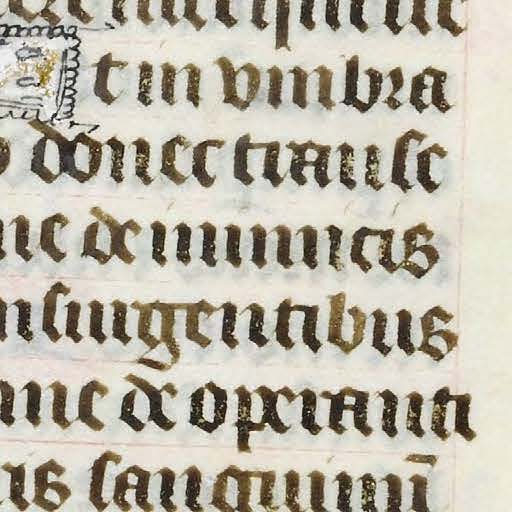 t in vmbra
donec transe
me de inimicis
insurgentibus
me de operanti
is sanguinū